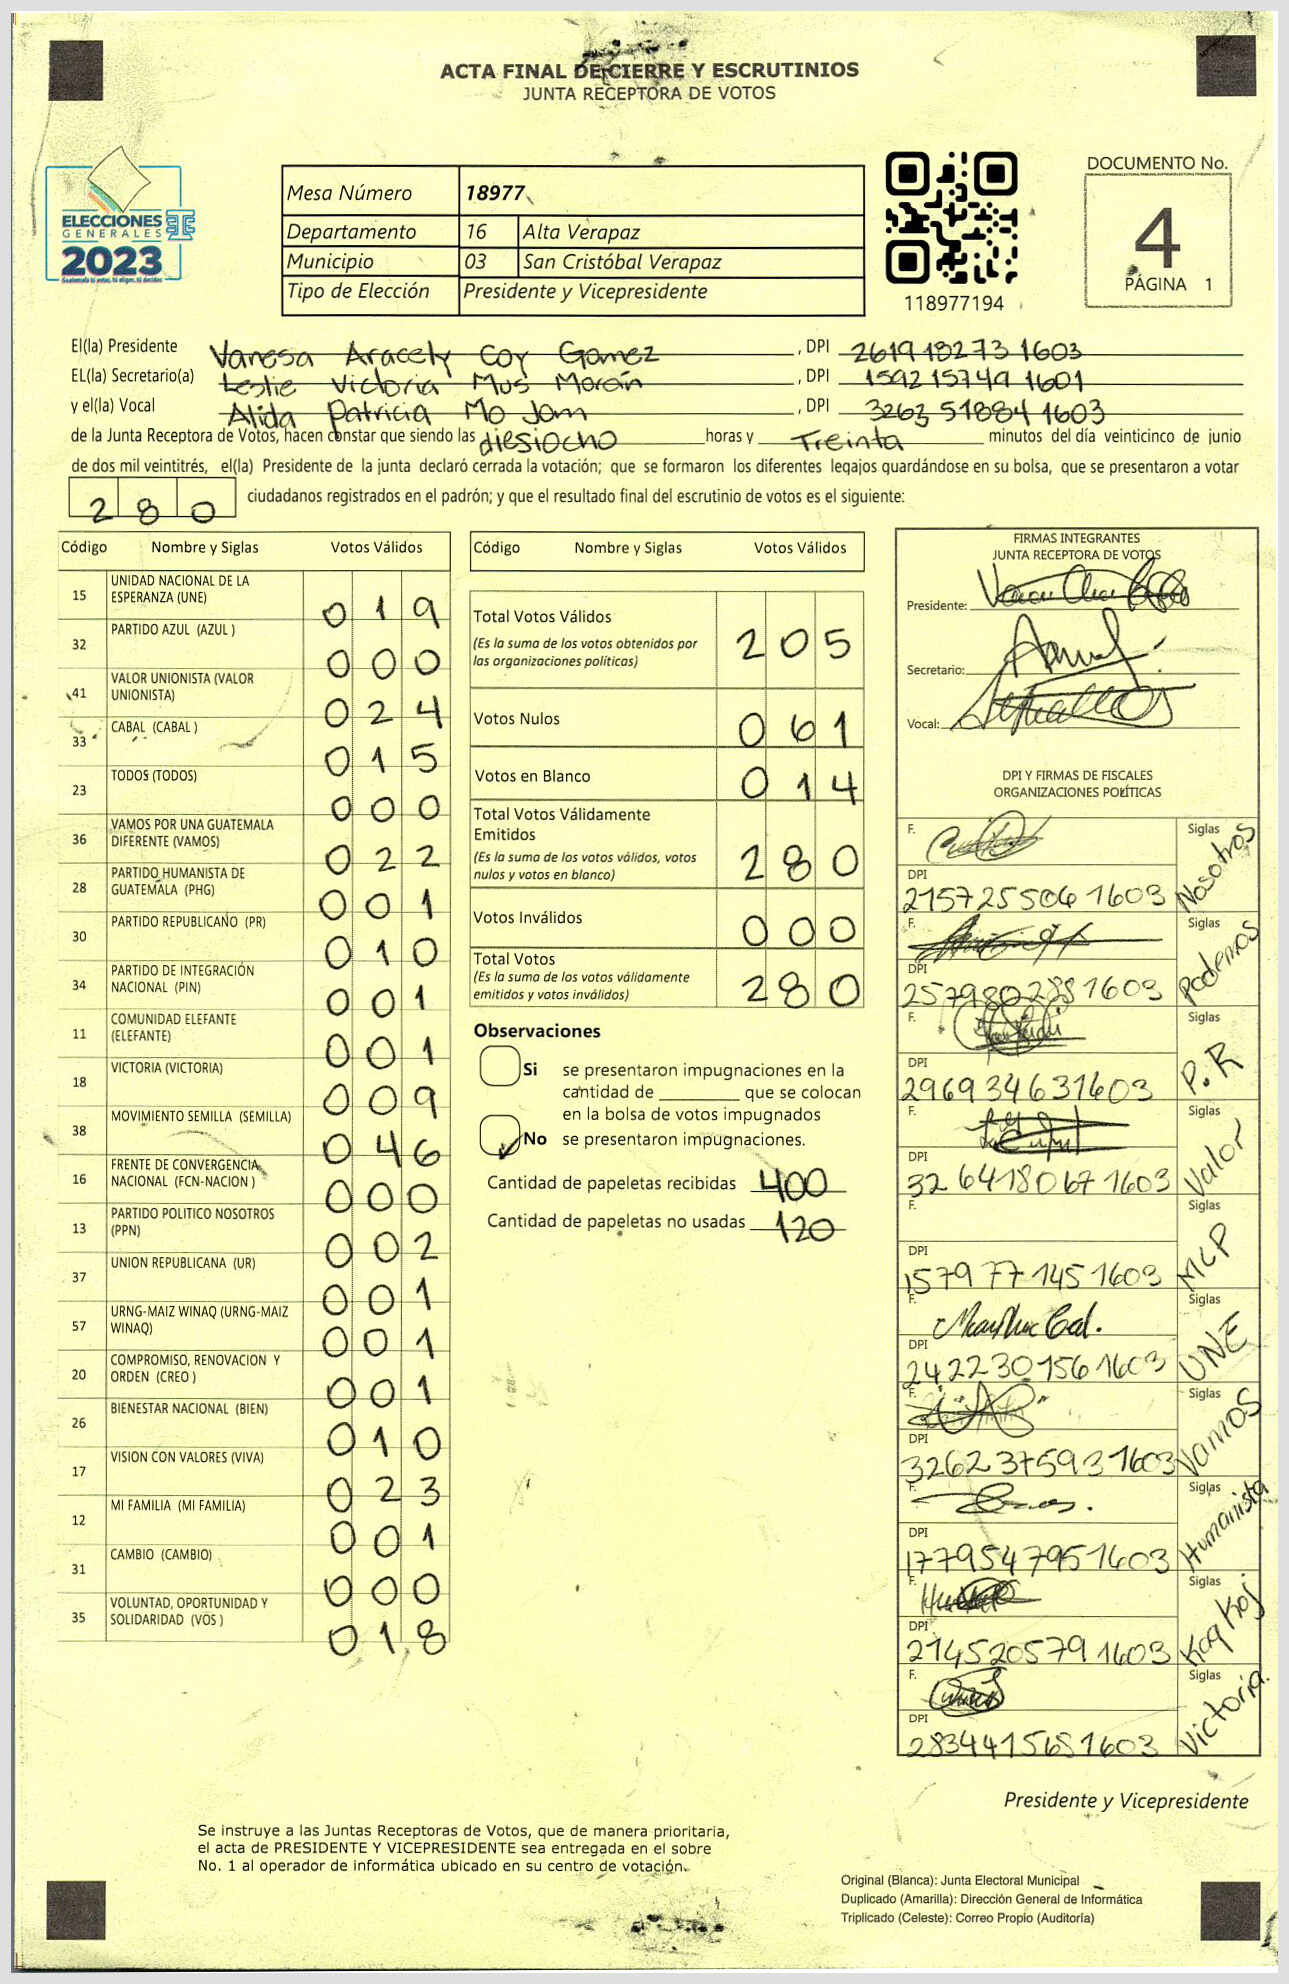 ACTA FINAL DE CIERRE Y ESCRUTINIOS
JUNTA RECEPTORA DE VOTOS
ELECCIONES
GENERALES
2023
Mesa Número 18977
Departamento 16 Alta Verapaz
Municipio 03 San Cristóbal Verapaz
Tipo de Elección Presidente y Vicepresidente
118977194
DOCUMENTO No.
4
PÁGINA 1
El(la) Presidente Vanesa Aracely Coy Gomez, DPI 2619 18273 1603
EL(la) Secretario(a) Leslie Victoria Mus Morán, DPI 1592 15749 1601
y el(la) Vocal Alida Patricia Mo Jom, DPI 3263 51884 1603
de la Junta Receptora de Votos, hacen constar que siendo las diesiocho horas y Treinta minutos del día veinticinco de junio
de dos mil veintitrés, el(la) Presidente de la junta declaró cerrada la votación; que se formaron los diferentes legajos guardándose en su bolsa, que se presentaron a votar
280 ciudadanos registrados en el padrón; y que el resultado final del escrutinio de votos es el siguiente:
Código Nombre y Siglas Votos Válidos
15 UNIDAD NACIONAL DE LA ESPERANZA (UNE) 019
32 PARTIDO AZUL (AZUL ) 000
41 VALOR UNIONISTA (VALOR UNIONISTA) 024
33 CABAL (CABAL ) 015
23 TODOS (TODOS) 000
36 VAMOS POR UNA GUATEMALA DIFERENTE (VAMOS) 022
28 PARTIDO HUMANISTA DE GUATEMALA (PHG) 001
30 PARTIDO REPUBLICANO (PR) 010
34 PARTIDO DE INTEGRACIÓN NACIONAL (PIN) 001
11 COMUNIDAD ELEFANTE (ELEFANTE) 001
18 VICTORIA (VICTORIA) 009
38 MOVIMIENTO SEMILLA (SEMILLA) 046
16 FRENTE DE CONVERGENCIA NACIONAL (FCN-NACION ) 000
13 PARTIDO POLITICO NOSOTROS (PPN) 002
37 UNION REPUBLICANA (UR) 001
57 URNG-MAIZ WINAQ (URNG-MAIZ WINAQ) 001
20 COMPROMISO, RENOVACION Y ORDEN (CREO ) 001
26 BIENESTAR NACIONAL (BIEN) 010
17 VISION CON VALORES (VIVA) 023
12 MI FAMILIA (MI FAMILIA) 001
31 CAMBIO (CAMBIO) 000
35 VOLUNTAD, OPORTUNIDAD Y SOLIDARIDAD (VOS ) 018
Código Nombre y Siglas Votos Válidos
Total Votos Válidos 205
(Es la suma de los votos obtenidos por las organizaciones políticas)
Votos Nulos 061
Votos en Blanco 014
Total Votos Válidamente Emitidos 280
(Es la suma de los votos válidos, votos nulos y votos en blanco)
Votos Inválidos 000
Total Votos 280
(Es la suma de los votos válidamente emitidos y votos inválidos)
Observaciones
Si se presentaron impugnaciones en la
cantidad de ________ que se colocan
en la bolsa de votos impugnados
No se presentaron impugnaciones.
Cantidad de papeletas recibidas 400
Cantidad de papeletas no usadas 120
FIRMAS INTEGRANTES
JUNTA RECEPTORA DE VOTOS
Presidente:
Secretario:
Vocal:
DPI Y FIRMAS DE FISCALES
ORGANIZACIONES POLÍTICAS
F. Siglas Nosotros
DPI 2157255061603
F. Siglas Podemos
DPI 2579802881603
F. Siglas P.R
DPI 296934631603
F. Siglas Valor
DPI 3264180671603
F. Siglas MLP
DPI 1579771451603
F. Siglas UNE
DPI 2422301561603
F. Siglas Vamos
DPI 3262375931603
F. Siglas Humanista
DPI 1779547951603
F. Siglas
DPI 2145205791603
F. Siglas Victoria.
DPI 2834415651603
Presidente y Vicepresidente
Se instruye a las Juntas Receptoras de Votos, que de manera prioritaria,
el acta de PRESIDENTE Y VICEPRESIDENTE sea entregada en el sobre
No. 1 al operador de informática ubicado en su centro de votación.
Original (Blanca): Junta Electoral Municipal
Duplicado (Amarilla): Dirección General de Informática
Triplicado (Celeste): Correo Propio (Auditoría)